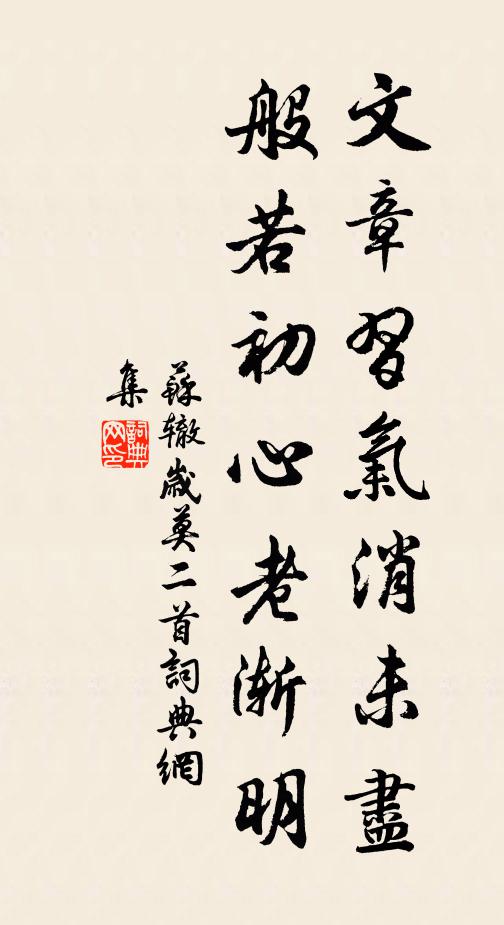 文章習氣消未盡
般若初心老漸明
蘇轍歲莫二首詞典網
集
詞典網印